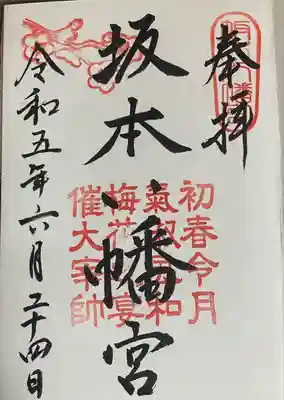 奉拝
坂本八幡宮
初春令月
氣淑風和
梅花宴
催大宰帥
令和五年六月二十四日